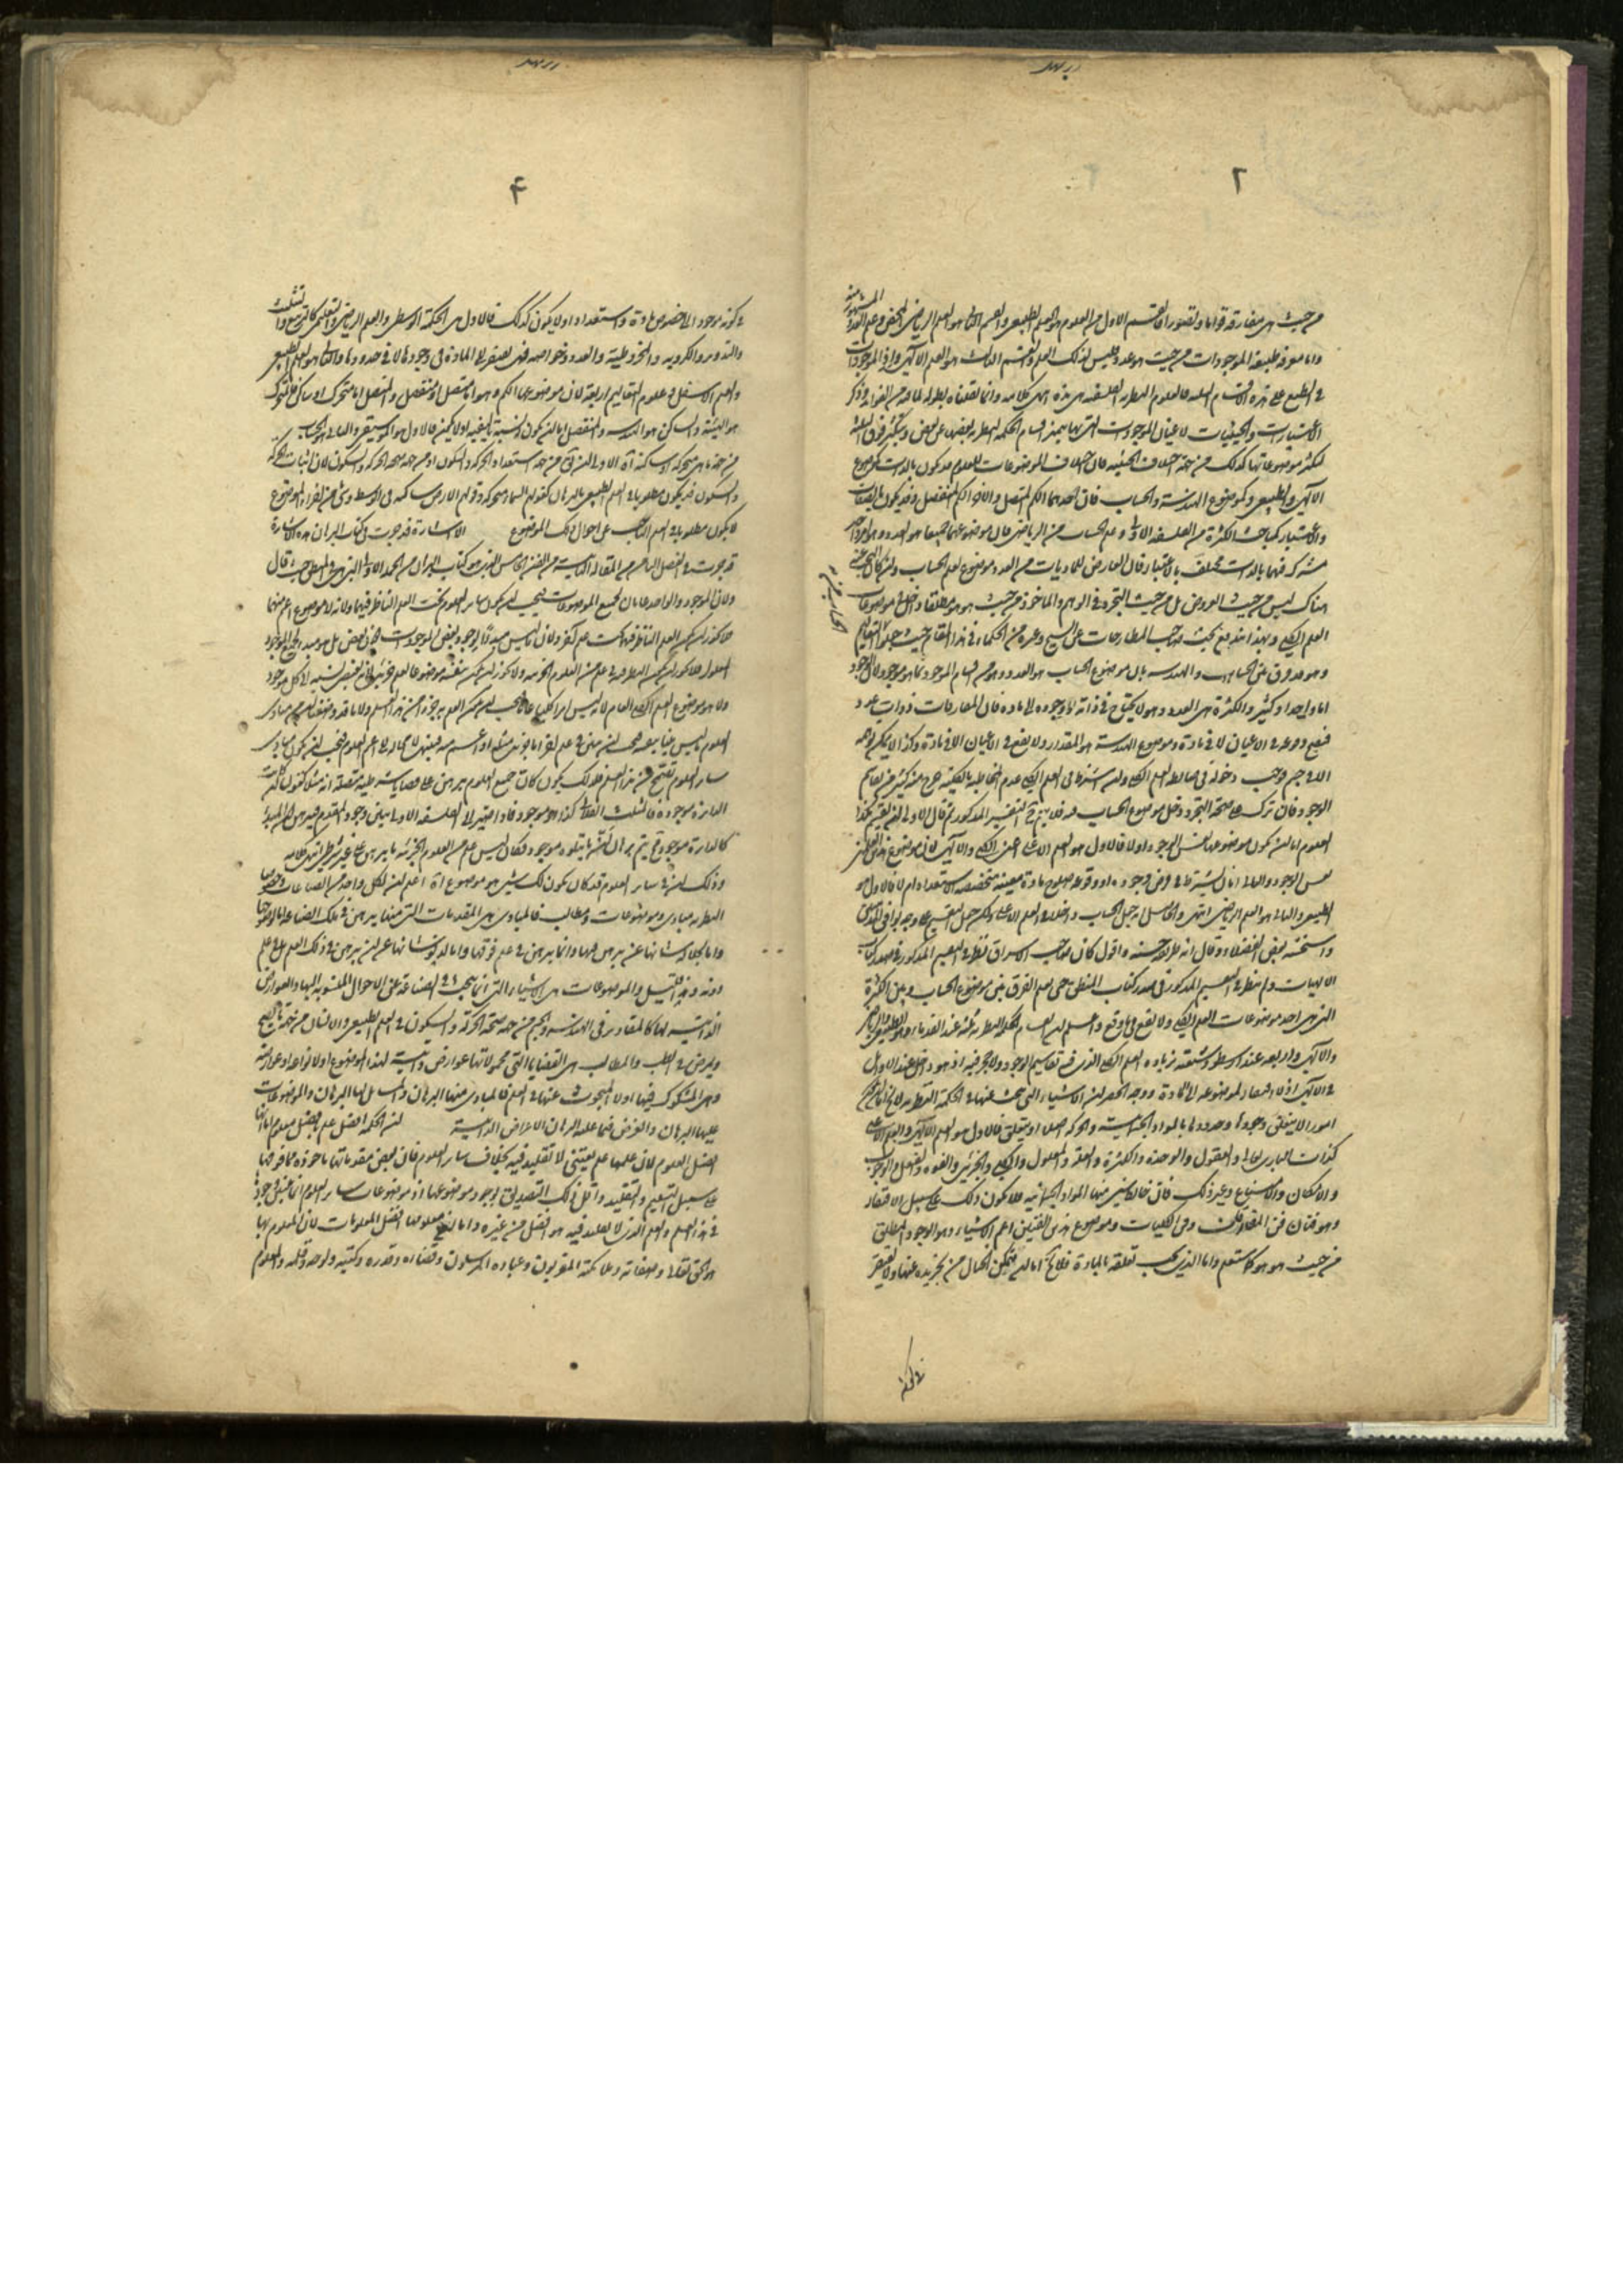 ٢
من حيث هى مفارقة قواما وتصورا فالقسم الاول من العلوم هو العلم الطبيعى والقسم الثانى هو العلم الرياضى المحض وعلم العدد المشهور منه
واما معرفة طبيعة الموجودات من حيث هو عدد فليس لذلك العلم والقسم الثالث هو العلم الالهى واذ الموجودات
فى الطبع على هذه الاقسام الثلثة فالعلوم النظرية الفلسفية هى هذه انتهى كلامه وانما نقلناه بطوله لما فيه من الفوائد وذكر
الاعتبارات والحيثيات لاعيان الموجودات التى بها يتميز اقسام الحكمة النظرية بعضها عن بعض
لتكثر موضوعاتها كذلك من جهة اختلاف الحيثية فان اختلاف الموضوعات للعلوم قد يكون بالذات كموضوع
الالهى والطبيعى وكموضوع الهندسة والحساب فان احدهما الكم المتصل والاخر الكم المنفصل وقد يكون بالصفات
والاعتبار كمباحث الكثرة من الفلسفة الاولى وعلم الحساب من الرياضى فان موضوعهما جميعا هو العدد وهو امر واحد
مشترك فيهما بالذات مختلف بالاعتبار فان العارض للماديات من العدد موضوع لعلم الحساب وان كان البحث عنه
هناك ليس من حيث العروض بل من حيث التجرد فى الوهم والماخوذ من حيث هو هو مطلقا داخل فى موضوعات
العلم الكلى وبهذا اندفع بحث صاحب المطارحات على الشيخ وغيره من الحكماء فى هذا المقام حيث
وهو عدد وفرق بين الحساب والهندسة بان موضوع الحساب هو العدد وهو من اقسام الموجود بما هو موجود لان الموجود
اما واحد او كثير والكثرة هى العدد وهو لا يحتاج فى ذاته ولا وجوده الى مادة فان المفارقات ذوات عدد
فيصح وقوعه فى الاعيان لا فى مادة وموضوع الهندسة هو المقدار ولا يقع فى الاعيان الا فى مادة وكذا لا يمكن توهمه
الا فى جسم فوجب دخوله فى ضابط العلم الكلى ولو شرط فى العلم الكلى عدم المخالطة بالكلية خرج منه كثير من تقاسيم
الوجود فان ترك على صحة التجرد دخل موضوع الحساب فيه فلا يتم التفسير المذكور ثم قال الاولى ان يقسم هكذا
العلوم اما ان يكون موضوعها نفس الوجود او لا فالاول هو العلم الاعلى اعنى الكلى والالهى لان موضوع هذين العلمين
نفس الوجود والثانى اما ان يشترط فى فرض وجوده او وقوعه صلوح مادة معينة متخصصة الاستعداد ام لا فالاول هو
الطبيعى والثانى هو العلم الرياضى انتهى والحاصل انه جعل الحساب داخلا فى العلم الاعلى ولكن جعل التقسيم على وجه
واستحسنه بعض الفضلاء وقال انه طريقة حسنة واقول كان صاحب الاشراق نظر فى التقسيم المذكور فى صدر كتاب
الالهيات ولم ينظر فى التقسيم المذكور فى صدر كتاب المنطق حتى يعلم الفرق بين موضوع الحساب وبين الكثرة
التى هى احد موضوعات العلم الكلى ولا يقع فيما وقع واعلم ان اقسام الحكمة النظرية ثلثة عند القدماء وهو الطبيعى والرياضى
والالهى واربعة عند ارسطو وشيعته بزيادة العلم الكلى الذى فيه تقاسيم الوجود ولا حجر فيه اذ هو داخل عند الاوائل
فى الالهى اذ لا افتقار لموضوعه الى المادة ووجه الحصر ان الاشياء التى يبحث عنها فى الحكمة النظرية لا يخ اما ان تكون
امورا لا يتعلق وجودها وحدودها بالمواد الجسمية والحركة اصلا او يتعلق فالاول هو العلم الالهى والعلم الاعلى
كذات البارى تعالى والعقول والوحدة والكثرة والعلة والمعلول والكلى والجزئى والقوة والفعل والوجوب
والامكان والامتناع وغير ذلك فان خالط شئ منها المواد الجسمانية فلا يكون ذلك على سبيل الافتقار
وهو فنان فن المفارقات وفن الكليات وموضوع هذين الفنين اعم الاشياء وهو الوجود المطلق
من حيث هو هو كما ستعلم واما الذى يجب تعلقه بالمادة فلا يخ اما ان يتمكن الخيال من تجريده عنها ولا يفتقر
٤
فى كونه موجودا الى خصوص مادة واستعداد او لا يكون كذلك فالاول هى الحكمة الوسطى والعلم الرياضى والتعليمى كالتربيع والتثليث
والتدوير والكروية والمخروطية والعدد وخواصه فهى تفتقر الى المادة فى وجودها لا فى حدودها والثانى هو العلم الطبيعى
والعلم الاسفل وعلوم التعاليم اربعة لان موضوعها الكم وهو اما متصل او منفصل والمتصل اما متحرك او ساكن فالمتحرك
هو الهيئة والساكن هو الهندسة والمنفصل اما ان يكون له نسبة تاليفية او لا يكون فالاول هو الموسيقى والثانى هو الحساب
من جهة ما هى متحركة او ساكنة آه الاولى ان يق من جهة استعداد الحركة والسكون او من جهة صحة الحركة والسكون لان اثبات الحركة
والسكون قد يكون مطلوبا فى العلم الطبيعى بالبرهان كقولهم السماء متحركة وقولهم الارض ساكنة فى الوسط وشئ من اجزاء الموضوع
لا يكون مطلوبا فى العلم الباحث عن احوال ذلك الموضوع الاشارة قد جرت فى كتاب البرهان هذه الاشارة
قد جرت فى الفصل من المقالة الثانية من الفن الخامس الذى هو كتاب البرهان من الجملة الاولى التى هى فى المنطق حيث قال
ولان الموجود والواحد عامان لجميع الموضوعات فيجب ان يكون سائر العلوم تحت العلم الناظر فيهما ولانه لا موضوع اعم منهما
فلا يجوز ان يكون العلم الناظر فيهما تحت علم آخر ولان ما ليس مبدءا لوجود بعض الموجودات دون بعض بل هو مبدء لجميع الموجود
المعلول فلا يجوز ان يكون النظر فيه فى علم من العلوم الجزئية ولا يجوز ان يكون بنفسه موضوعا لعلم جزئى لانه يقتضى نسبة الى كل موجود
ولا هو موضوع العلم الكلى العام لانه ليس امرا كليا عاما فيجب ان يكون العلم به جزء من هذا العلم ولانا قد وضعنا ان من مبادى
العلوم ما ليس بينا بنفسه فيجب ان يبين فى علم آخر اما جزئى مثله او اعم منه فينتهى لا محالة الى اعم العلوم فيجب ان يكون مبادى
سائر العلوم تصح من هذا العلم فلذلك يكون كان جميع العلوم تبرهن على قضايا شرطية متصلة انه مثلا كقولك ان كانت
الدائرة موجودة فالمثلث الفلانى كذا او هو موجود فاذا صير الى الفلسفة الاولى تبين وجود المقدم فيبرهن على ان المبدء
كالدائرة موجود ثم يتم برهان ان ما يتلوه موجود فكان ليس علم من العلوم الجزئية ما يبرهن على غير شرط انتهى كلامه
وذلك ان فى سائر العلوم قد كان يكون لك شئ هو موضوع آه اعلم ان لكل واحد من الصناعات وخصوصا
النظرية مبادى وموضوعات ومطالب فالمبادى هى المقدمات التى منها يبرهن فى تلك الصناعة اما لوضوحها
واما لجلالة شانها عن ان تبرهن فيها وانما تبرهن فى علم فوقها واما لدنو شانها عن ان تبرهن فى ذلك العلم بل فى علم
دونه وهذا قليل والموضوعات هى الاشياء التى انما يبحث فى الصناعة عن الاحوال المنسوبة اليها والعوارض
الذاتية لها كالمقادير فى الهندسة والجسم من جهة صحة الحركة والسكون فى العلم الطبيعى والانسان من جهة ما يصح
ويمرض فى الطب والمطالب هى القضايا التى محمولاتها عوارض ذاتية لهذا الموضوع او لانواعه او عوارضه
وهى المشكوك فيها اولا المبحوث عنها فى العلم فالمبادى منها البرهان والمسائل لها البرهان والموضوعات
عليها البرهان والغرض فيما عليه البرهان الاعراض الذاتية ان الحكمة افضل علم بافضل معلوم اما انها
افضل العلوم لان علمها علم يقينى لا تقليد فيه بخلاف سائر العلوم فان بعض مقدماتها ماخوذة مما فوقها
على سبيل التسليم والتقليد واقل ذلك التصديق بوجود موضوعها اذ موضوعات سائر العلوم انما تثبت وجودها
فى هذا العلم والعلم الذى لا تقليد فيه هو افضل من غيره واما ان معلومها افضل المعلومات لان المعلوم بها
هو الحق تعالى وصفاته وملائكته المقربون وعباده المرسلون وقضاءه وقدره وكتبه ولوحه وقلمه والعلوم